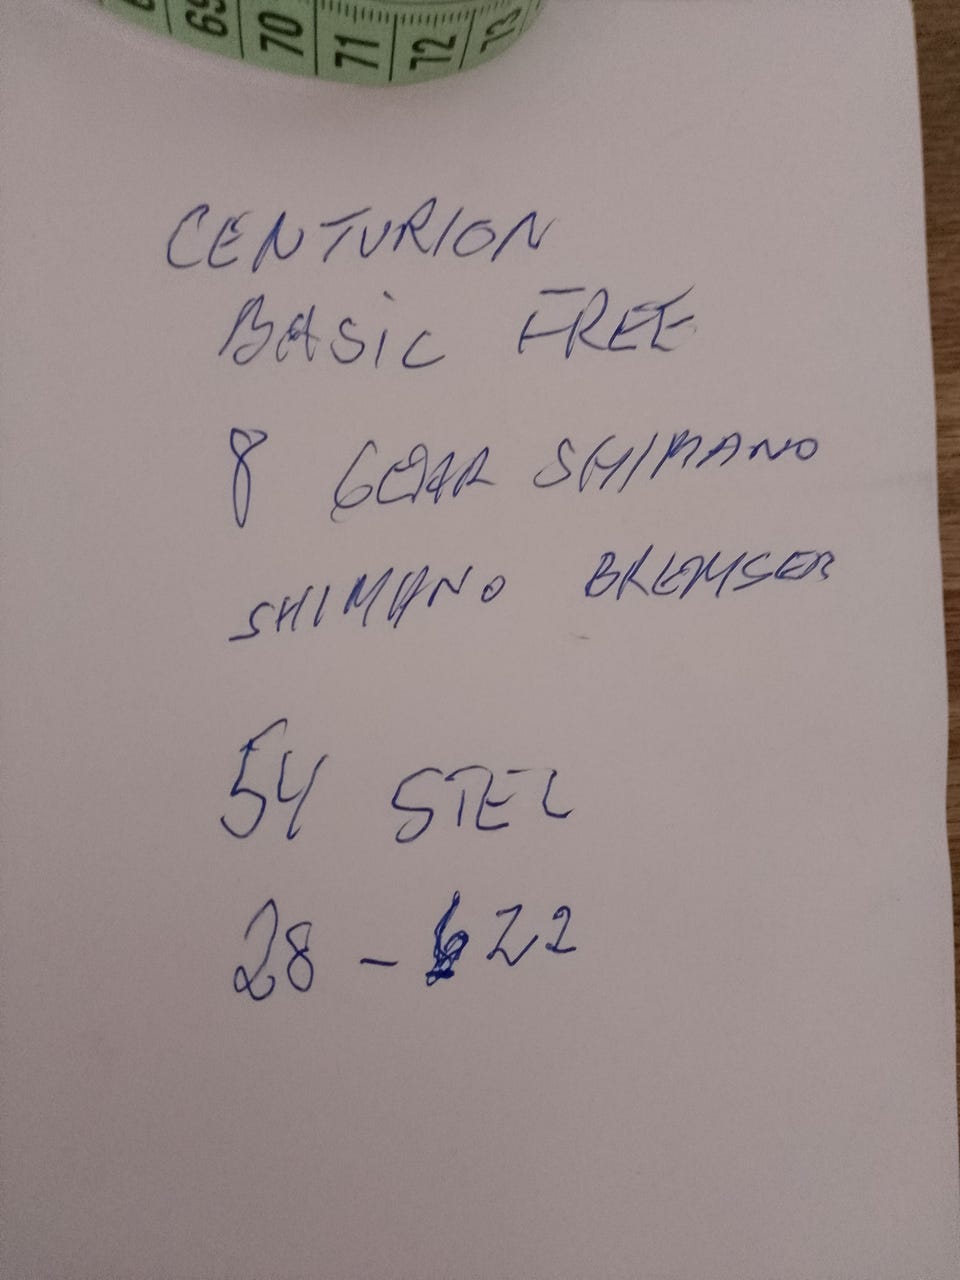 69 70 71 72 73
CENTURION
BASIC FREE
8 GEAR SHIMANO
SHIMANO BREMSER
54 STEL
28-622